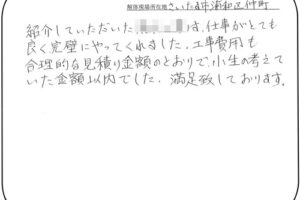 解体現場所在地 さいたま市浦和区仲町
紹介していただいた は、仕事がとても
良く完璧にやってくれました。工事費用も
合理的な見積り金額のとおりで、小生の考えて
いた金額以内でした。満足致しております。